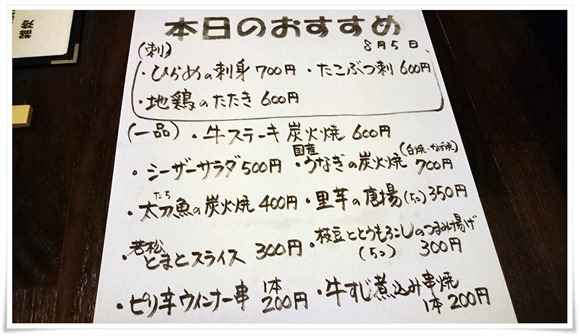 本日のおすすめ
8月5日
(刺)
・ひらめの刺身 700円 ・たこぶつ刺 600円
・地鶏のたたき 600円
(一品) ・牛ステーキ炭火焼 600円
・シーザーサラダ 500円 ・国産うなぎの炭火焼 700円
・太刀魚の炭火焼 400円 ・里芋の唐揚(5コ) 350円
たち
・若松とまとスライス 300円 ・枝豆ととうもろこしのつまみ揚げ
(5コ) 300円
・ピリ辛ウインナー串 1本 200円 ・牛すじ煮込み串焼
1本 200円